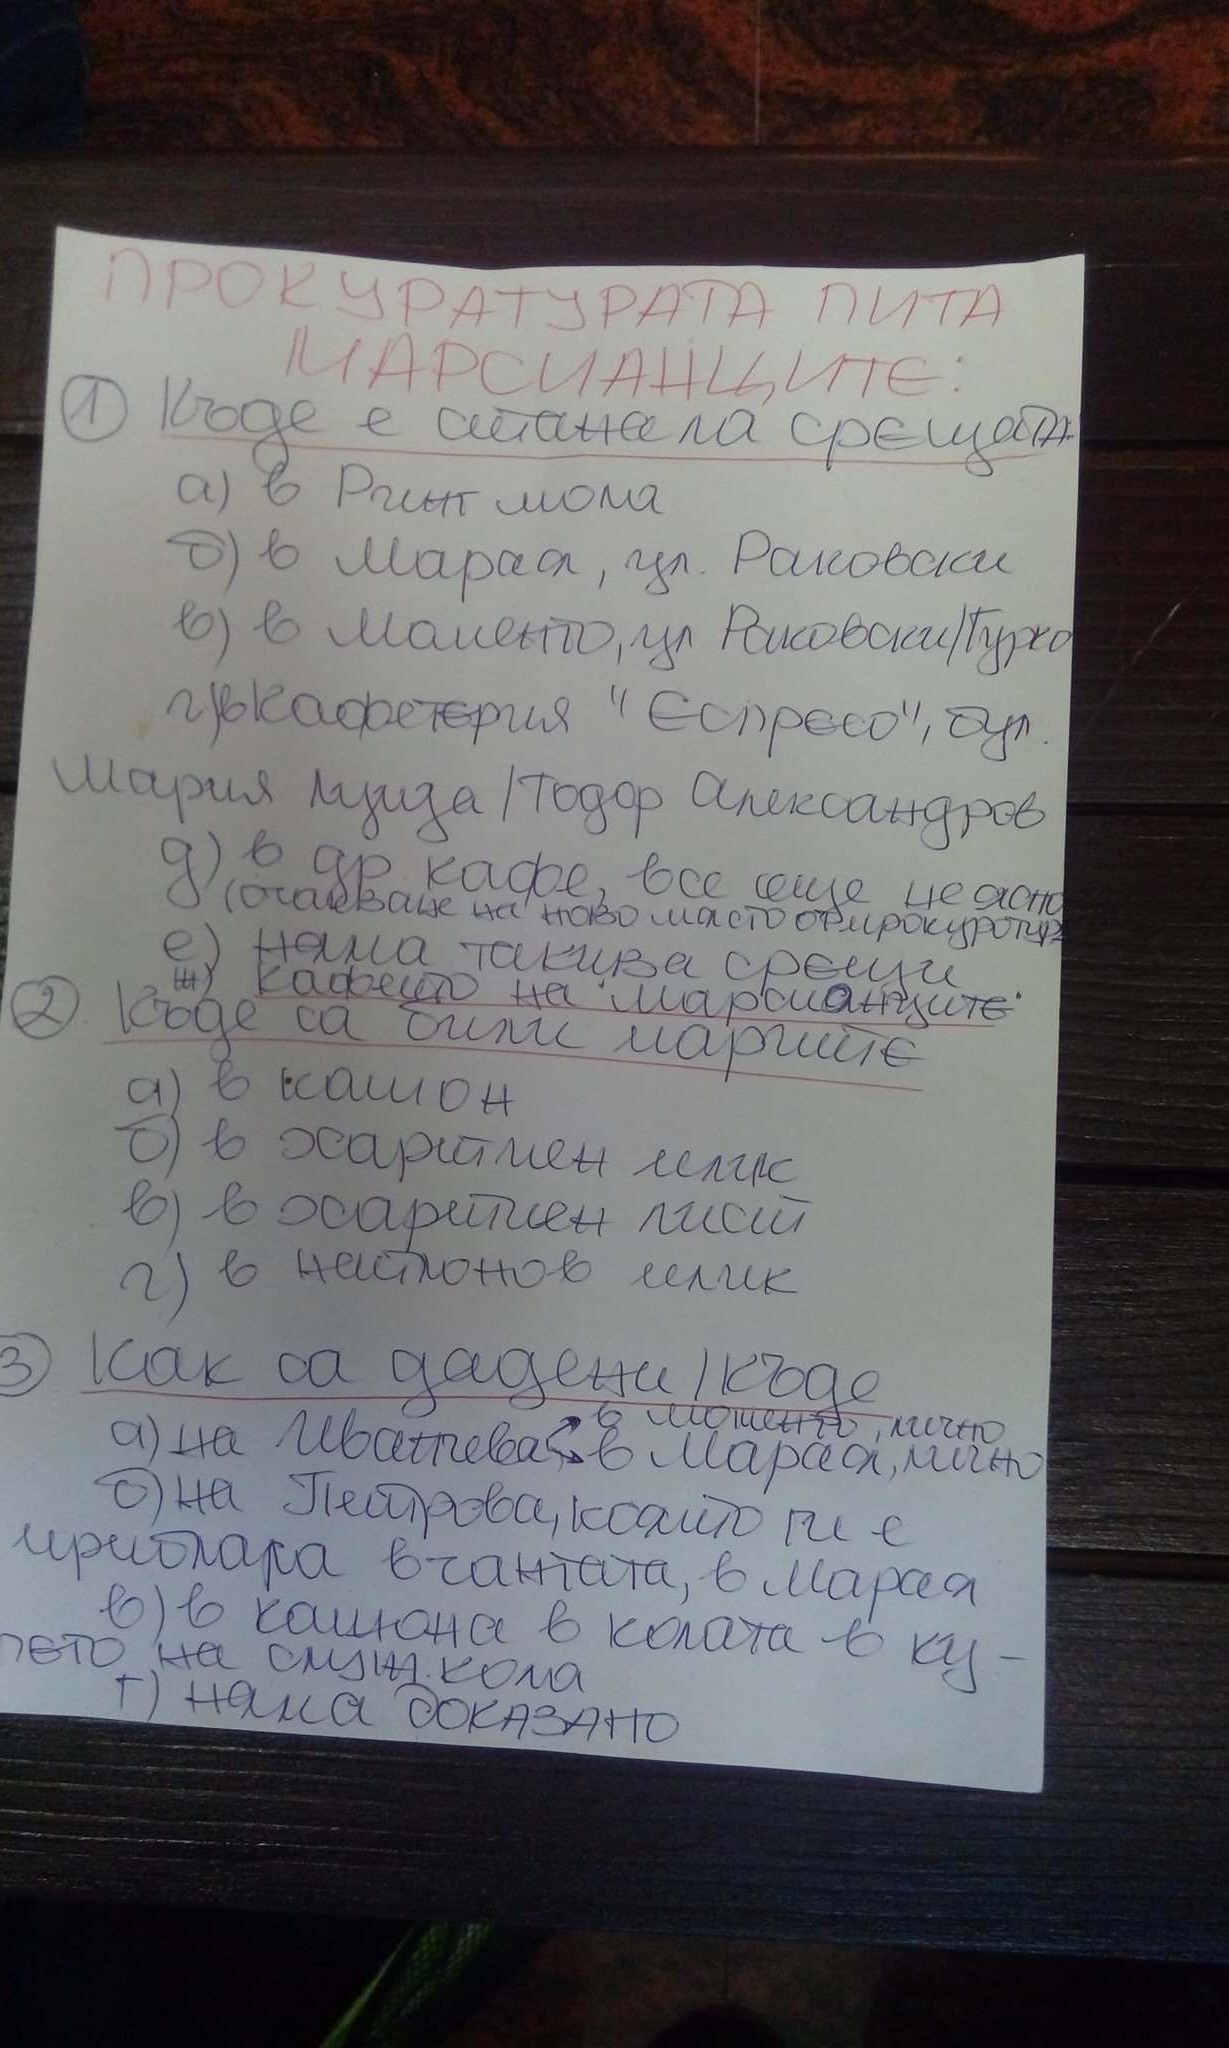 ПРОКУРАТУРАТА ПИТА
МАРСИАНЦИТЕ:
① Къде е станала срещата
а) в Ринг мола
б) в Марая, ул. Раковски
в) в Моменто, ул Раковски/Гурко
г) в кафетерия "Еспресо", бул.
Мария Луиза/Тодор Александров
д) в др кафе, все още не ясно
(очакване на ново място от прокуратур
е) няма такива срещи
ж) кафето на "марсианците"
② Къде са били парите
а) в кашон
б) в хартиен плик
в) в хартиен лист
г) в найлонов плик
③ Как са дадени/къде
в Моменто, лично
а) на Иванчева в Марая, лично
б) на Петрова, която ги е
прибрала в чантата, в Марая
в) в кашона в колата в ку-
пето на служ. кола
г) няма доказано